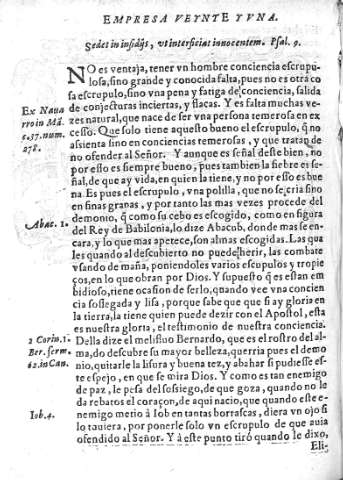 EMPRESA VEYNTE Y VNA.
Sedet in insidijs, vt interficiat innocentem. Psal. 9.
NO es ventaja, tener vn hombre conciencia escrupu-
losa, sino grande y conocida falta, pues no es otra co
sa escrupulo, sino vna pena y fatiga de conciencia, salida
de conjecturas inciertas, y flacas. Y es falta muchas ve-
Ex Naua
rro in Mã.
c. 37. num.
278.
zes natural, que nace de ser vna persona temerosa en ex
cesso. Que solo tiene aquesto bueno el escrupulo, q̃ no
assienta sino en conciencias temerosas, y que tratan de
no ofender al Señor. Y aunque es señal deste bien, no
por esso es siempre bueno, pues tambien la fiebre es se-
ñal, de que ay vida, en quien la tiene, y no por esso es bue
na. Es pues el escrupulo, vna polilla, que no se cria sino
en finas granas, y por tanto las mas vezes procede del
demonio, q̃ como su cebo es escogido, como en figura
Abac. 1.
del Rey de Babilonia, lo dize Abacob, donde mas se en-
cara, y lo que mas apetece, son almas escogidas. Las qua
les quando al descubierto no puede herir, las combate
vsando de maña, poniendoles varios escupulos y tropie
ços, en lo que obran por Dios. Y supuesto q̃ es estan em
bidioso, tiene ocasion de serlo, quando vee vna concien
cia sossegada y lisa, porque sabe que que si ay gloria en
la tierra, la tiene quien puede dezir con el Apostol, esta
2 Corin. 1.
es nuestra gloria, el testimonio de nuestra conciencia.
Ber. serm.
62. in Can.
Della dize el melifluo Bernardo, que es el rostro del al-
ma, do descubre su mayor belleza, querria pues el demo
nio, quitarle la lisura y buena tez, y abahar si pudiesse es-
te espejo, en que se mira Dios. Y como es tan enemigo
de paz, le pesa del sosiego, de que goza, quando no le
da rebatos el coraçon, de aqui nacio, que quando este e-
Iob. 4.
nemigo metio à Iob en tantas borrascas, diera vn ojo si
lo tauiera, por ponerle solo vn escrupulo de que auia
ofendido al Señor. Y à este punto tirò quando le dixo,
Eli-